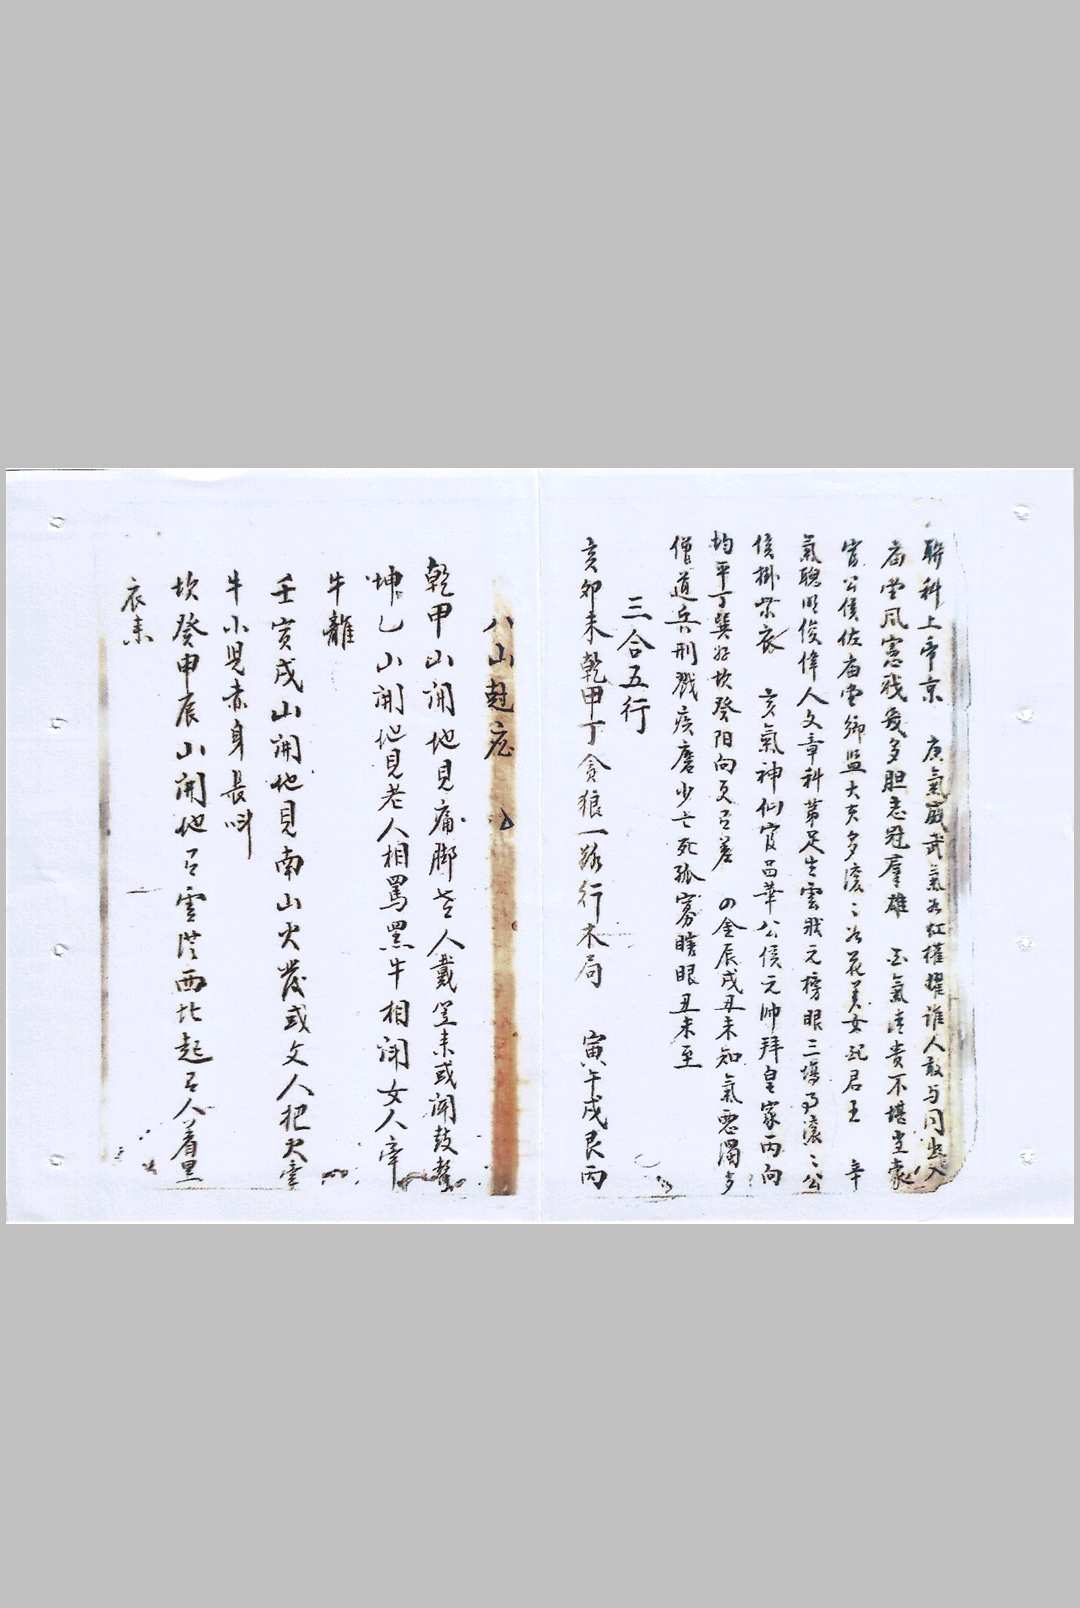 聯科上帝京　庚氣威武氣如虹權耀誰人敢与同出入
庙堂風憲我幾多胆志冠羣雄　酉氣清贵不堪言
官公侯佐庙堂卿监大夫多滚々如花美女配君王　辛
氣聰明俊偉人文章科第足生雲状元榜眼三場滚々公
侯掛紫衣　亥氣神仙官品華公侯元帅拜皇家丙向
均平丁巽好坎癸阳向更有差　四金辰戌丑未知氣悪濁多
僧道兵刑戮疾磨少亡死孤寡瞎眼丑未至
三合五行
亥卯未乾甲丁貪狼一路行木局　寅午戌艮丙
八山尅応
乾甲山開地見痛脚老人戴笠来或開鼓聲
坤乙山開地見老人相罵黑牛相闹女人牵
牛離
壬寅戌山開地見南山火发或文人把火牽
牛小児赤身長叫
坎癸申辰山開地有雲從西北起有人着黑
衣来